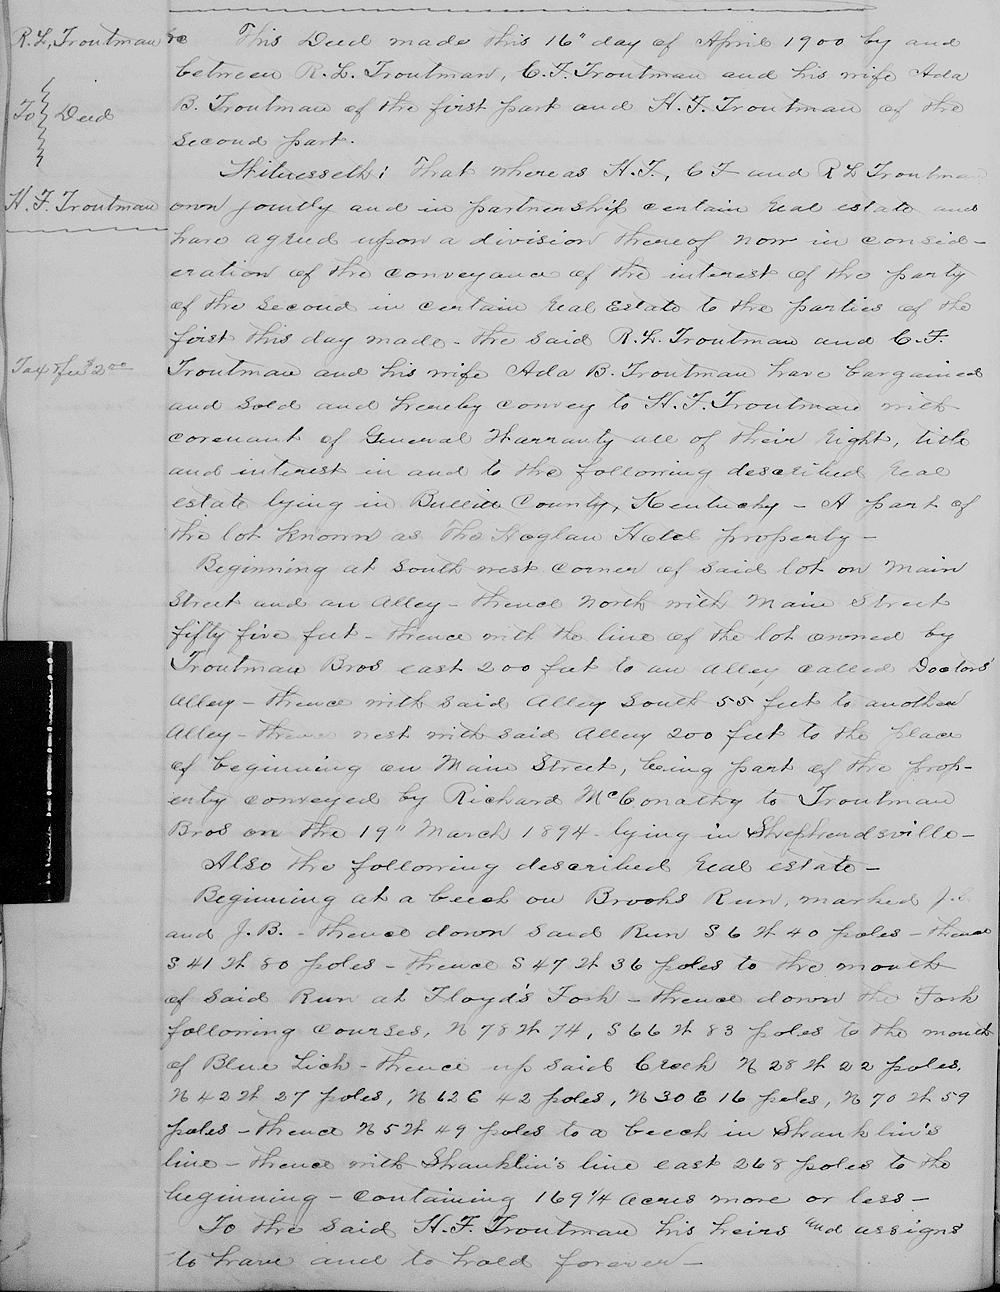 R. L. Troutman &c
To } Deed
H. F. Troutman
Tax & fee $2.00
This Deed made this 16" day of April 1900 by and
between R. L. Troutman, C. F. Troutman and his wife Ada
B. Troutman of the first part and H. F. Troutman of the
second part.
Witnesseth: That whereas H. F., C F and R L Troutman
own jointly and in partnership certain real estate and
have agreed upon a division thereof now in consid-
eration of the conveyance of the interest of the party
of the second in certain Real Estate to the parties of the
first this day made - the said R. L. Troutman and C. F.
Troutman and his wife Ada B. Troutman have bargained
and sold and hereby convey to H. F. Troutman with
covenant of General Warranty all of their Right, title
and interest in and to the following described real
estate lying in Bullitt County, Kentucky - A part of
the lot known as The Hoglan Hotel property -
Beginning at South west corner of said lot on Main
Street and an Alley - thence North with Main Street
fifty five feet - thence with the line of the lot owned by
Troutman Bros east 200 feet to an Alley called Doctors'
Alley - thence with said Alley South 55 feet to another
Alley - thence west with said Alley 200 feet to the place
of beginning on Main Street, being part of the prop-
erty conveyed by Richard McConathy to Troutman
Bros on the 19" March 1894 - lying in Shepherdsville -
Also the following described real estate -
Beginning at a beech on Brooks Run, marked J.
and J. B. - thence down said Run S 6 W 40 poles - thence
S 41 W 80 poles - thence S 47 W 36 poles to the mouth
of said Run at Floyd's Fork - thence down the Fork
following courses, N 78 W 74, S 66 W 83 poles to the mouth
of Blue Lick - thence up said Creek N 28 W 22 poles,
N 42 W 27 poles, N 12 E 42 poles, N 30 E 16 poles, N 70 W 59
poles - thence N 5 W 49 poles to a beech in Shanklin's
line - thence with Shanklin's line east 268 poles to the
beginning - containing 169 1/4 acres more or less -
To the said H. F. Troutman his heirs and assigns
to have and to hold forever -